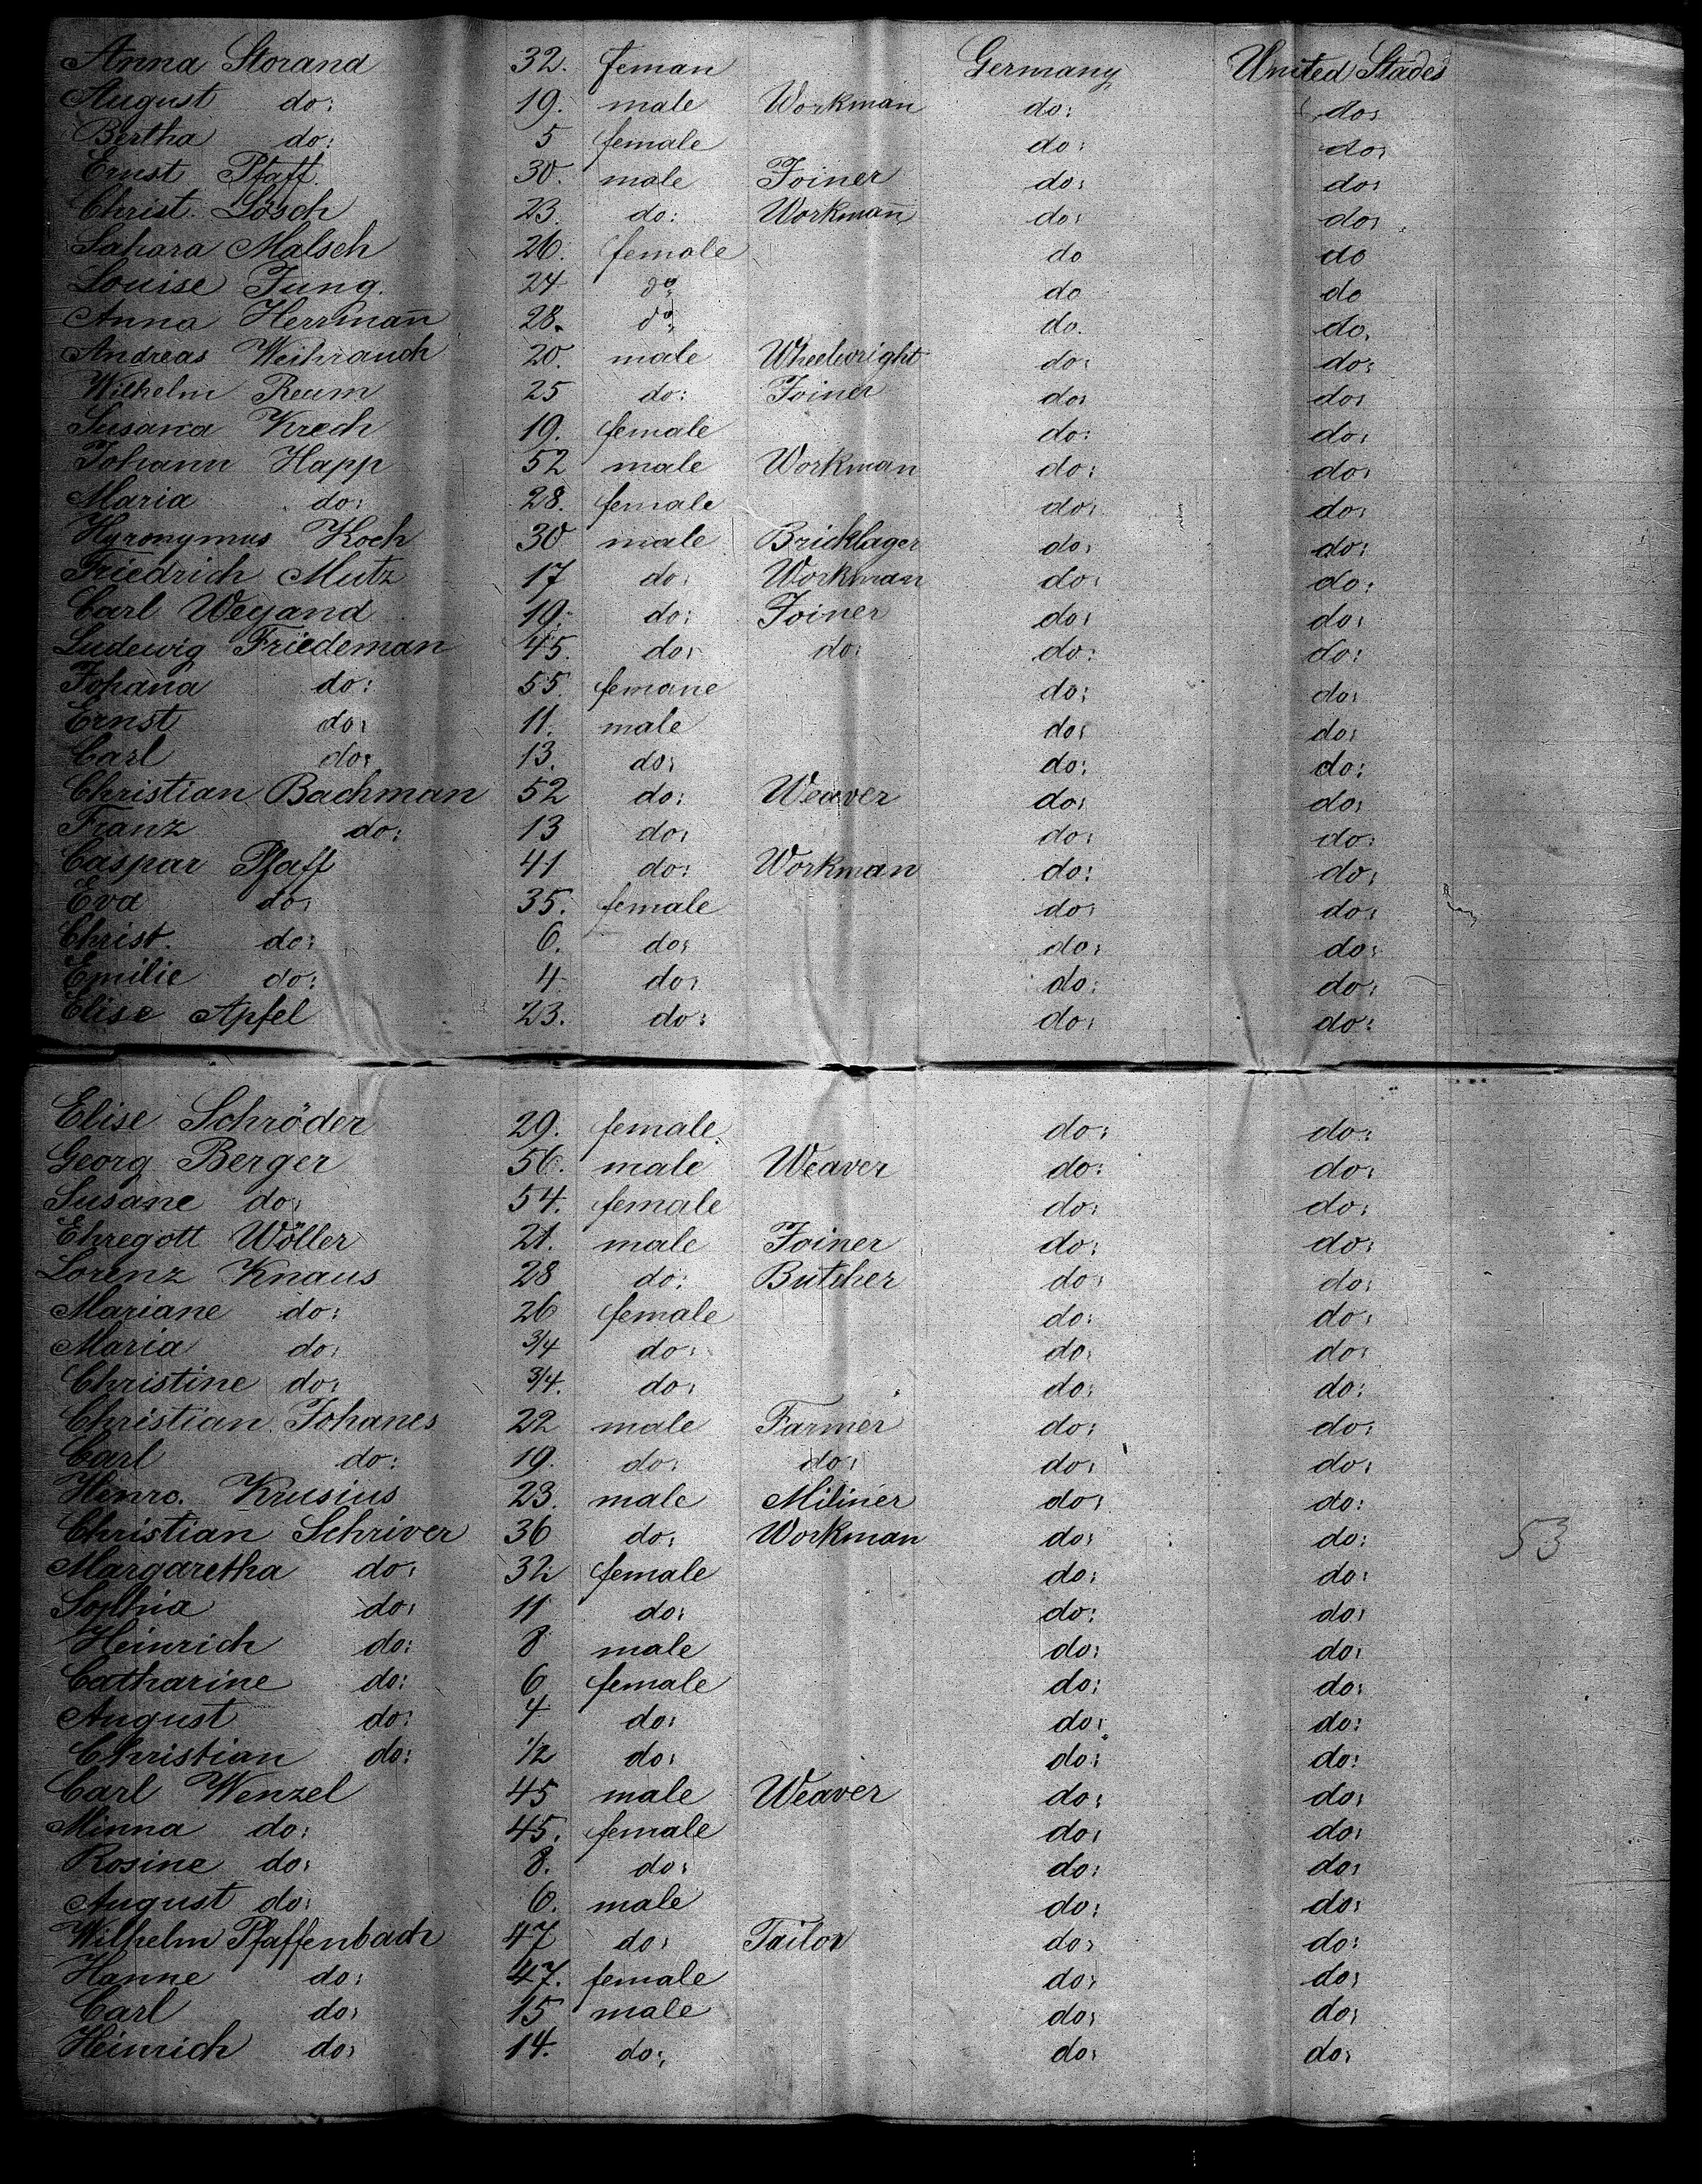 Anna Storand 32. feman Germany United Stades
August do: 19. male Workman do: do:
Bertha do: 5 female do: do:
Ernst Pfaff. 30. male Joiner do: do:
Christ. Lösch 23. do: Workman do: do:
Sahara Malsch 26. female do do
Louise Jung. 24 do: do do
Anna Herrman̄ 28. do: do. do.
Andreas Weihrauch 20. male Wheelwright do: do:
Wilhelm Reum 25 do: Joiner do: do:
Susana Krech 19. female do: do:
Johann Happ 52 male Workman do: do:
Maria do: 28. female do: do:
Hyronymus Koch 30 male Bricklager do: do:
Friedrich Mutz 17 do: Workman do: do:
Carl Weyand 19. do: Joiner do: do:
Ludewig Friedeman 45. do: do: do: do:
Johana do: 55. femane do: do:
Ernst do: 11. male do: do:
Carl do: 13. do: do: do:
Christian Bachman 52 do: Weaver do: do:
Franz do: 13 do: do: do:
Caspar Pfaff 41 do: Workman do: do:
Eva do: 35. female do: do:
Christ. do: 6. do: do: do:
Emilie do: 4 do: do: do:
Elise Apfel 23. do: do: do:
Elise Schröder 29. female. do: do:
Georg Berger 56. male Weaver do: do:
Susane do: 54. female do: do:
Ehregott Wöller 21. male Joiner do: do:
Lorenz Knaus 28 do: Butcher do: do:
Mariane do: 26 female do: do:
Maria do: 3/4 do: do: do:
Christine do: 3/4. do: do: do:
Christian Johanes 22 male Farmer do: do:
Carl do: 19. do: do: do: do:
Henrc. Krusius 23. male Miliner do: do:
Christian Schriver 36 do: Workman do: do: 53
Margaretha do: 32 female do: do:
Sophia do: 11 do: do: do:
Heinrich do: 8 male do: do:
Catharine do: 6 female do: do:
August do: 4 do: do: do:
Christian do: 1/2 do: do: do:
Carl Wenzel 45 male Weaver do: do:
Minna do: 45. female do: do:
Rosine do: 8. do: do: do:
August do: 6. male do: do:
Wilhelm Pfaffenbach 47 do: Tailor do: do:
Hanne do: 47. female do: do:
Carl do: 15 male do: do:
Heinrich do: 14. do: do: do: